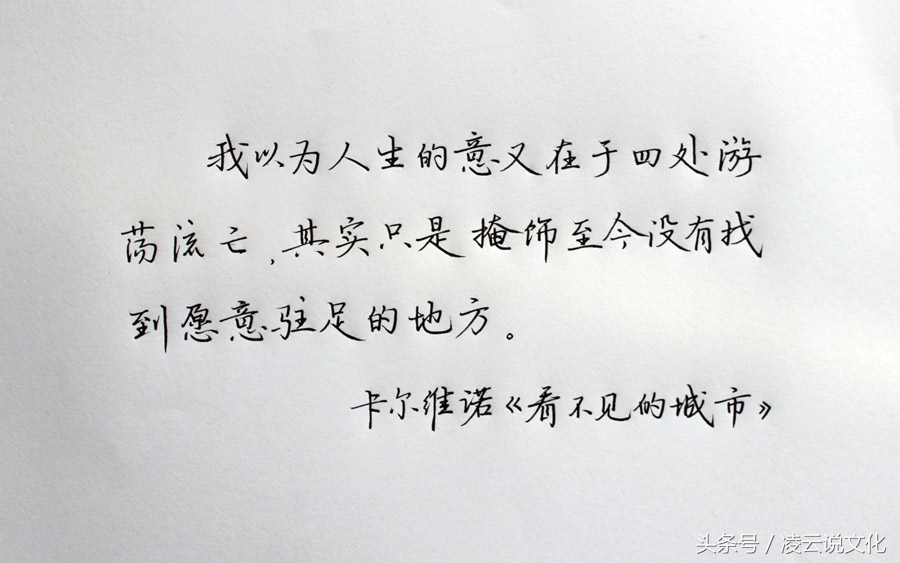 我以为人生的意义在于四处游
荡流亡,其实只是掩饰至今没有找
到愿意驻足的地方。
卡尔维诺《看不见的城市》
头条号 / 凌云说文化